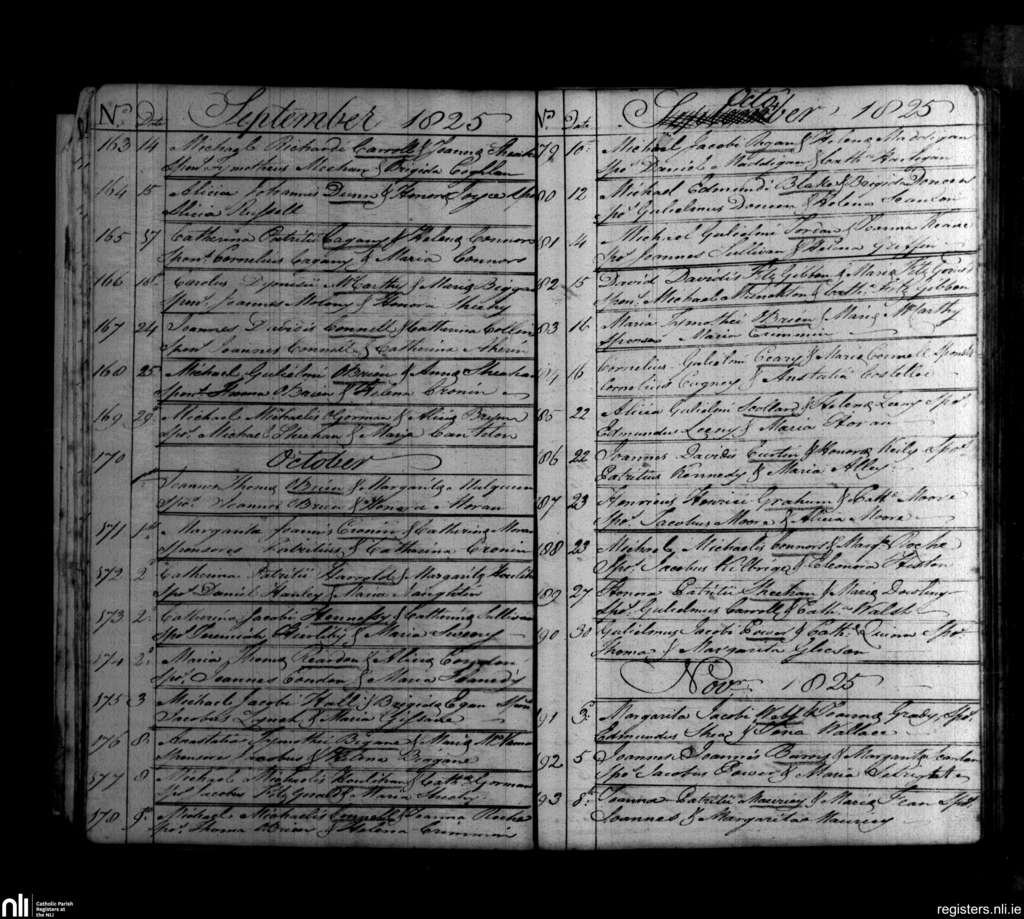 No. Date September 1825
163 14 Michael Richardi Carroll & Joanna
Spon. Tymotheus Meehan & Brigida Coghlan
164 15 Alicia Johannis Dunn & Honora Joyce
Alicia Russell
165 17 Catherina Patritii Cagany & Helena Connors
Spon. Cornelius Cagany & Maria Connors
166 18 Carolus Dionisii McCarthy & Maria
Spon. Joannes Molony & Honora Sheehy
167 24 Joannes Davidis Connell & Catherina Collins
Spon. Joannes Connell & Catherina Ahern
168 25 Michael Gulielmi OBrien & Anna Sheehan
Spon. Thoma OBrien & Helena Cronin
169 29 Michael Michaelis OGorman & Alicia
Spo. Michael Sheehan & Maria Cantlon
170 October
Joannes Thoma OBrien & Margarita Mulqueen
Spo. Joannes OBrien & Honora Moran
171 1 Margarita Joannis Cronin & Catherina
Sponsores Patritius & Catharina Cronin
172 2 Catherina Patritii Harrold & Margarita
Spo. Daniel Hanley & Maria Naughten
173 2 Catherina Jacobi Hennessy & Catherina Sullivan
Spo. Jeremiah & Maria Sweeny
174 2 Maria Thoma Reardon & Alicia Condon
Spo. Joannes Condon & Maria Kennedy
175 3 Michael Jacobi Hall & Brigida Egan Spon
Jacobus Lynch & Maria
176 8 Anastatia Tymothei Bigane & Maria
Sponsores Jacobus & Helena Biggane
177 8 Michael Michaelis Houlihan & Cath. Gorman
Spo. Jacobus FitzGerald & Maria Sheehy
178 9 Michael Michaelis Connell & Joanna Roche
Spo. Thoma OBrien & Helena Crimmin
No. Date October 1825
79 10 Michael Jacobi Regan & Helena Maddigan
Spo. Daniel Maddigan & Cath. Hartigan
80 12 Michael Edmundi Blake & Brigida Doncon
Spo. Gulielmus Doncon & Helena Scanlon
81 14 Michael Gulielmi & Joanna Keane
Spo. Joannes Sullivan & Helena Griffin
82 15 David Davidis FitzGibbon & Maria
Spon. Michael & Cath. FitzGibbon
83 16 Maria Tymothei OBrien & Maria McCarthy
Sponsor Maria Crimmin
84 16 Cornelius Gulielmi Geary & Maria Connell Sponsores
Cornelius & Anstatia Costelloe
85 22 Alicia Gulielmi Scollard & Helena Leeny Spo.
Edmundus Leeny & Maria Horan
86 22 Joannes Davidis Curtin & Honora Keily Spo.
Patritius Kennedy & Maria Alley
87 23 Henricus Henrici Graham & Cath. Moore
Spo. Jacobus Moore & Alicia Moore
88 23 Michael Michaelis Connors & Marg. Roche
Spo. Jacobus Kilbridge & Eleonora
89 27 Honora Patritii Sheehan & Maria Dowling
Spo. Gulielmus Carroll & Cath. Walsh
90 30 Gulielmus Jacobi Power & Cath. Quinn Spo.
Thoma & Margarita Gleeson
Nov. 1825
91 3 Margarita Jacobi Webb & Joanna Grady Spo.
Edmundus Shea & Wallace
92 5 Joannes Joannis Barry & Margarita Hanlon
Spo. Jacobus Power & Maria
93 8 Joanna Patritii Mauricy & Maria Spo.
Joannes & Margarita Mauricy
nli Catholic Parish
Registers at
the NLI
registers.nli.ie